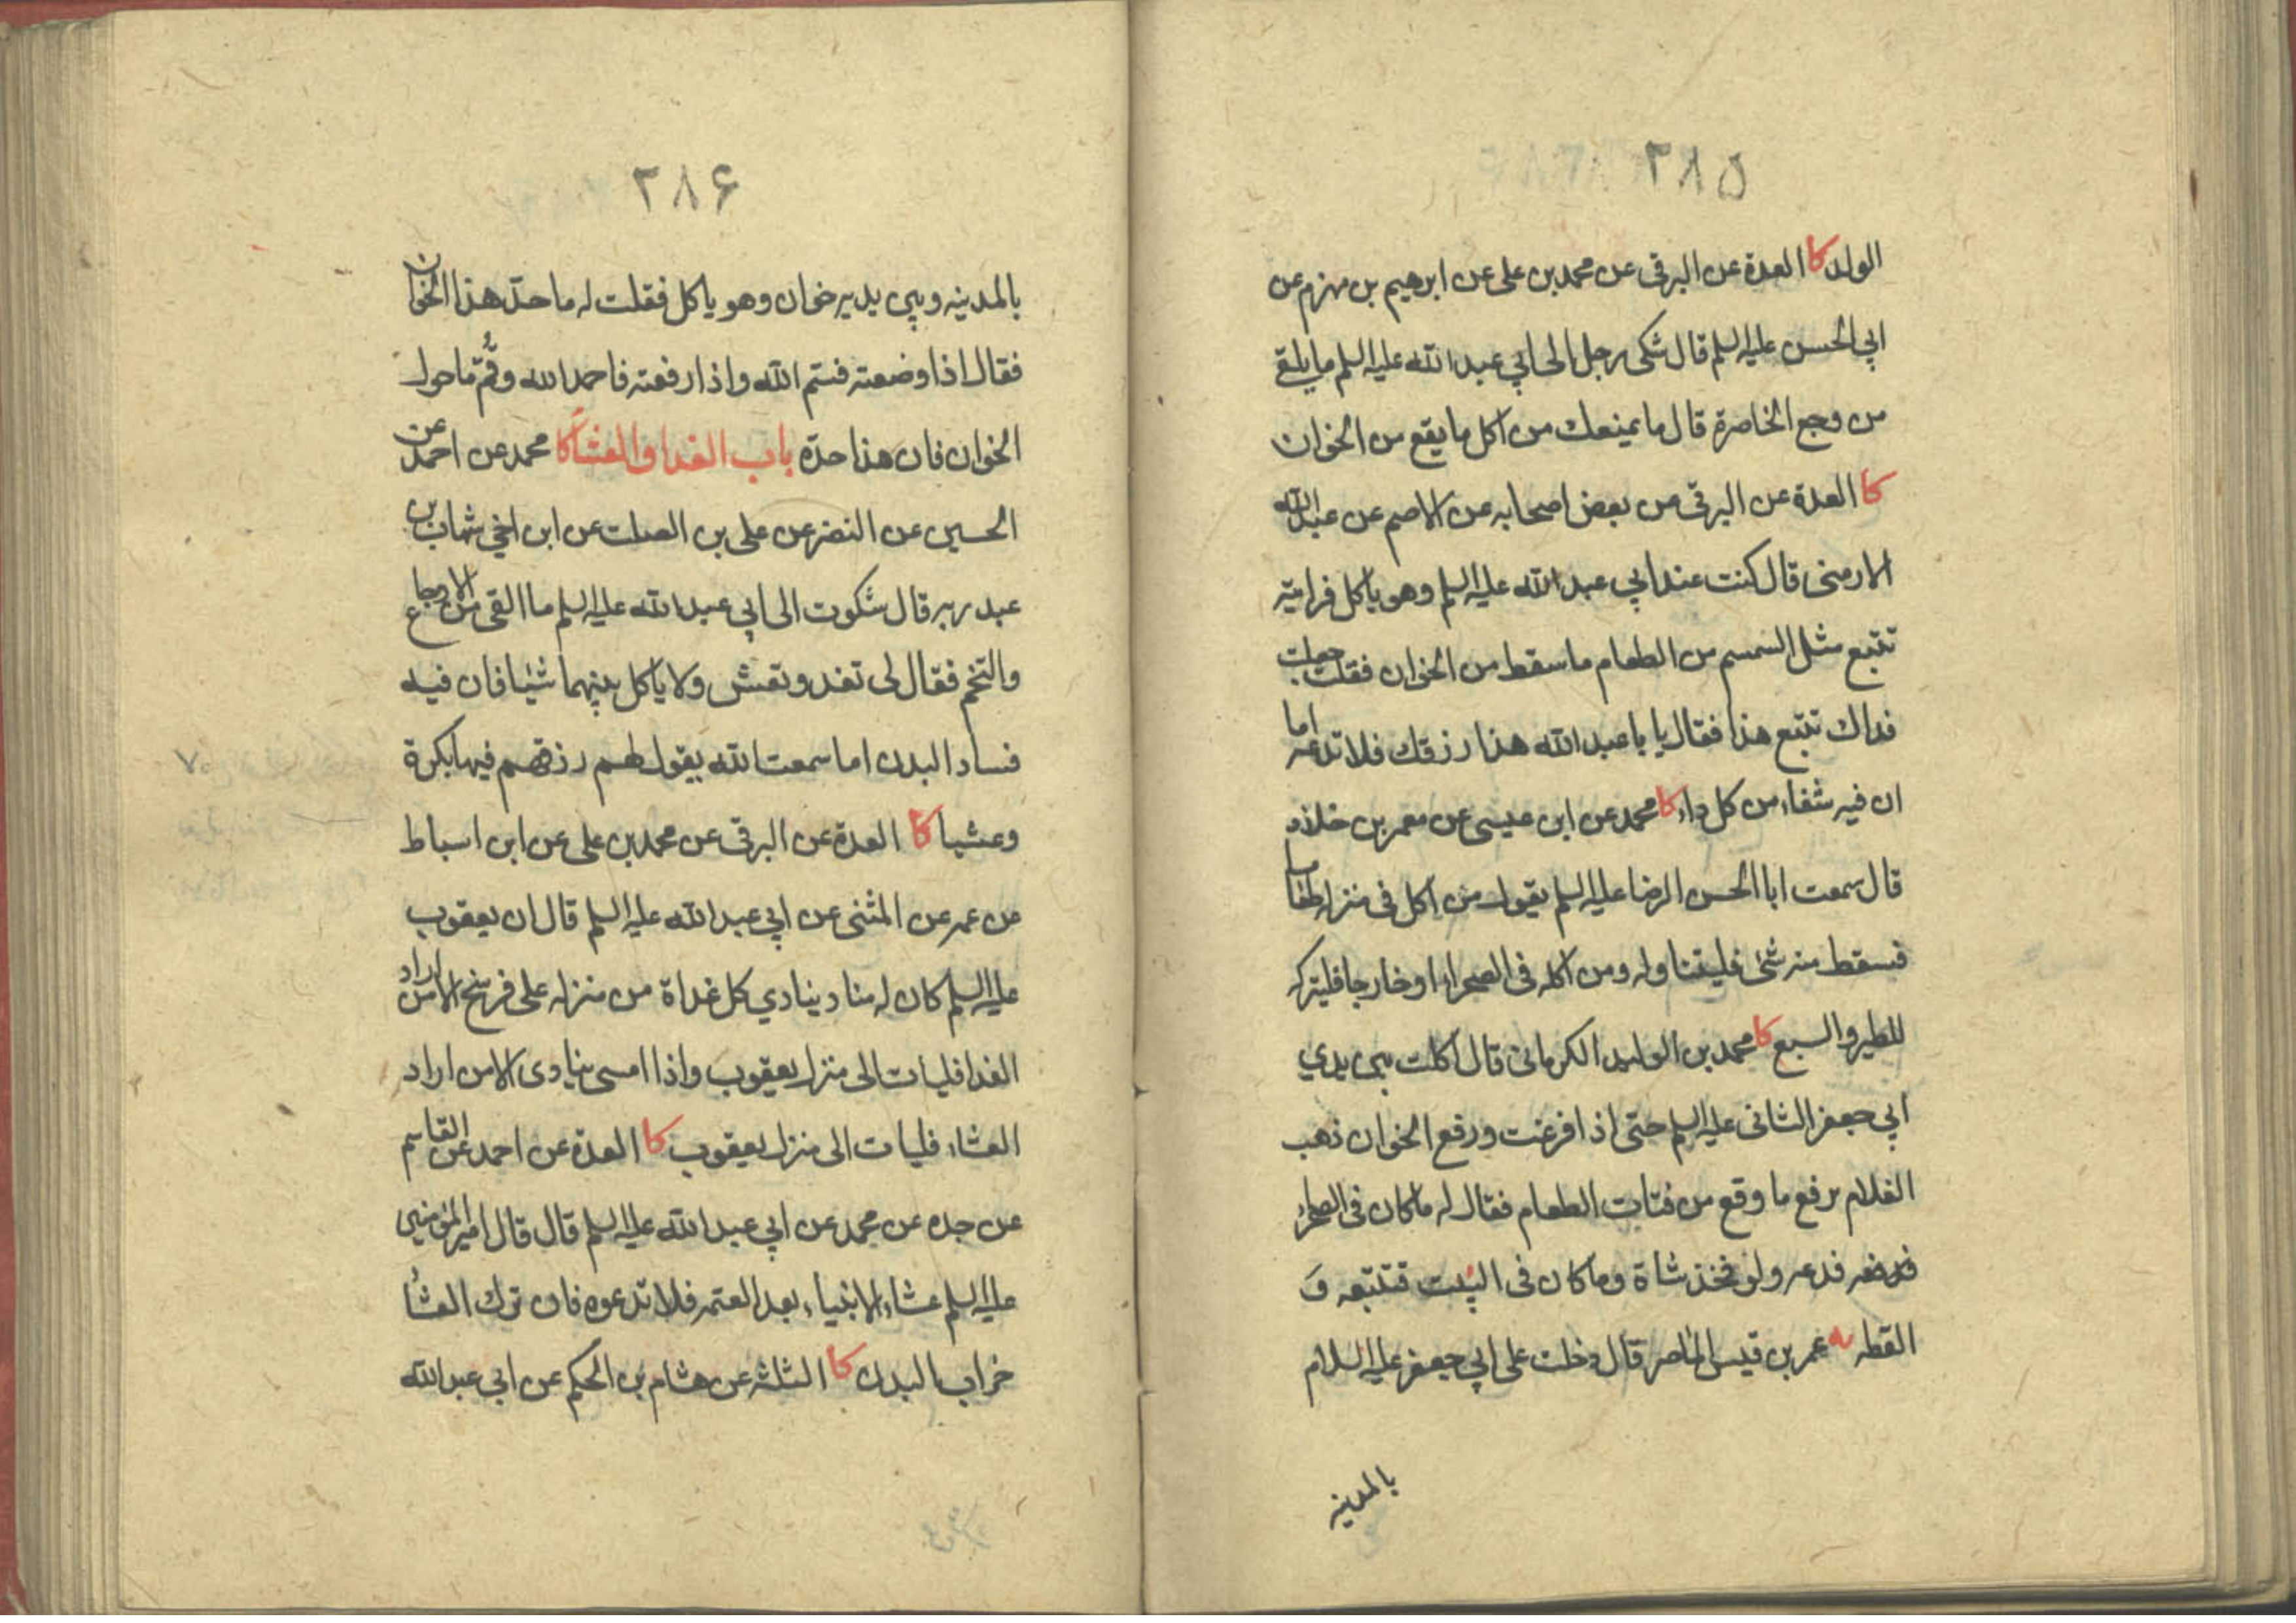 ٢٨۵
الولد كا العدة عن البرقى عن محمد بن على عن ابرهيم بن مهزم عن
ابي الحسن عليه السلم قال شكى رجل الى ابي عبد الله عليه السلم ما يلقى
من وجع الخاصرة قال ما يمنعك من اكل ما يقع من الخوان
كا العدة عن البرقى عن بعض اصحابه عن الاصم عن عبد الله
الارمنى قال كنت عند ابي عبد الله عليه السلم وهو ياكل فرايته
تتبع مثل السمسم من الطعام ما سقط من الخوان فقلت جعلت
فداك تتبع هذا فقال يا با عبد الله هذا رزقك فلا تدعه اما
ان فيه شفاء من كل داء كا محمد عن ابن عيسى عن معمر بن خلاد
قال سمعت ابا الحسن الرضا عليه السلم يقول من اكل فى منزله طعاما
فسقط منه شئ فليتناوله ومن اكله فى الصحراء او خارجا فليتركه
للطير والسبع كا محمد بن الوليد الكرمانى قال اكلت بين يدي
ابي جعفر الثانى عليه السلم حتى اذا فرغت ورفع الخوان ذهب
الغلام يرفع ما وقع من فتات الطعام فقال له ما كان فى الصحراء
فدعه ولو فخذ شاة وما كان فى البيت فتتبعه و
القطه يه عمر بن قيس الماصر قال دخلت على ابي جعفر عليه السلام
بالمدينه
٢٨۶
بالمدينه وبين يديه خوان وهو ياكل فقلت له ما حد هذا الخوان
فقال اذا وضعته فسم الله واذا رفعته فاحمد الله وقُمّ ما حول
الخوان فان هذا حده باب الغدا والعشا كا محمد عن احمد عن
الحسين عن النضر عن على بن الصلت عن ابن اخي شهاب بن
عبد ربه قال شكوت الى ابي عبد الله عليه السلم ما القى من الاوجاع
والتخم فقال لى تغد وتعش ولا ياكل بينهما شيئا فان فيه
فساد البدن اما سمعت الله يقول لهم رزقهم فيها بكرة
وعشيا كا العدة عن البرقى عن محمد بن على عن ابن اسباط
عن عمه عن المثنى عن ابي عبد الله عليه السلم قال ان يعقوب
عليه السلم كان له مناد ينادي كل غداة من منزله على فرسخ الا من اراد
الغدا فليات الى منزل يعقوب واذا امسى ينادى الا من اراد
العشاء فليات الى منزل يعقوب كا العدة عن احمد عن القاسم
عن جده عن محمد عن ابي عبد الله عليه السلم قال قال امير المؤمنين
عليه السلم عشاء الانبياء بعد العتمه فلا تدعوه فان ترك العشا
خراب البدن كا الثلثه عن هشام بن الحكم عن ابي عبد الله